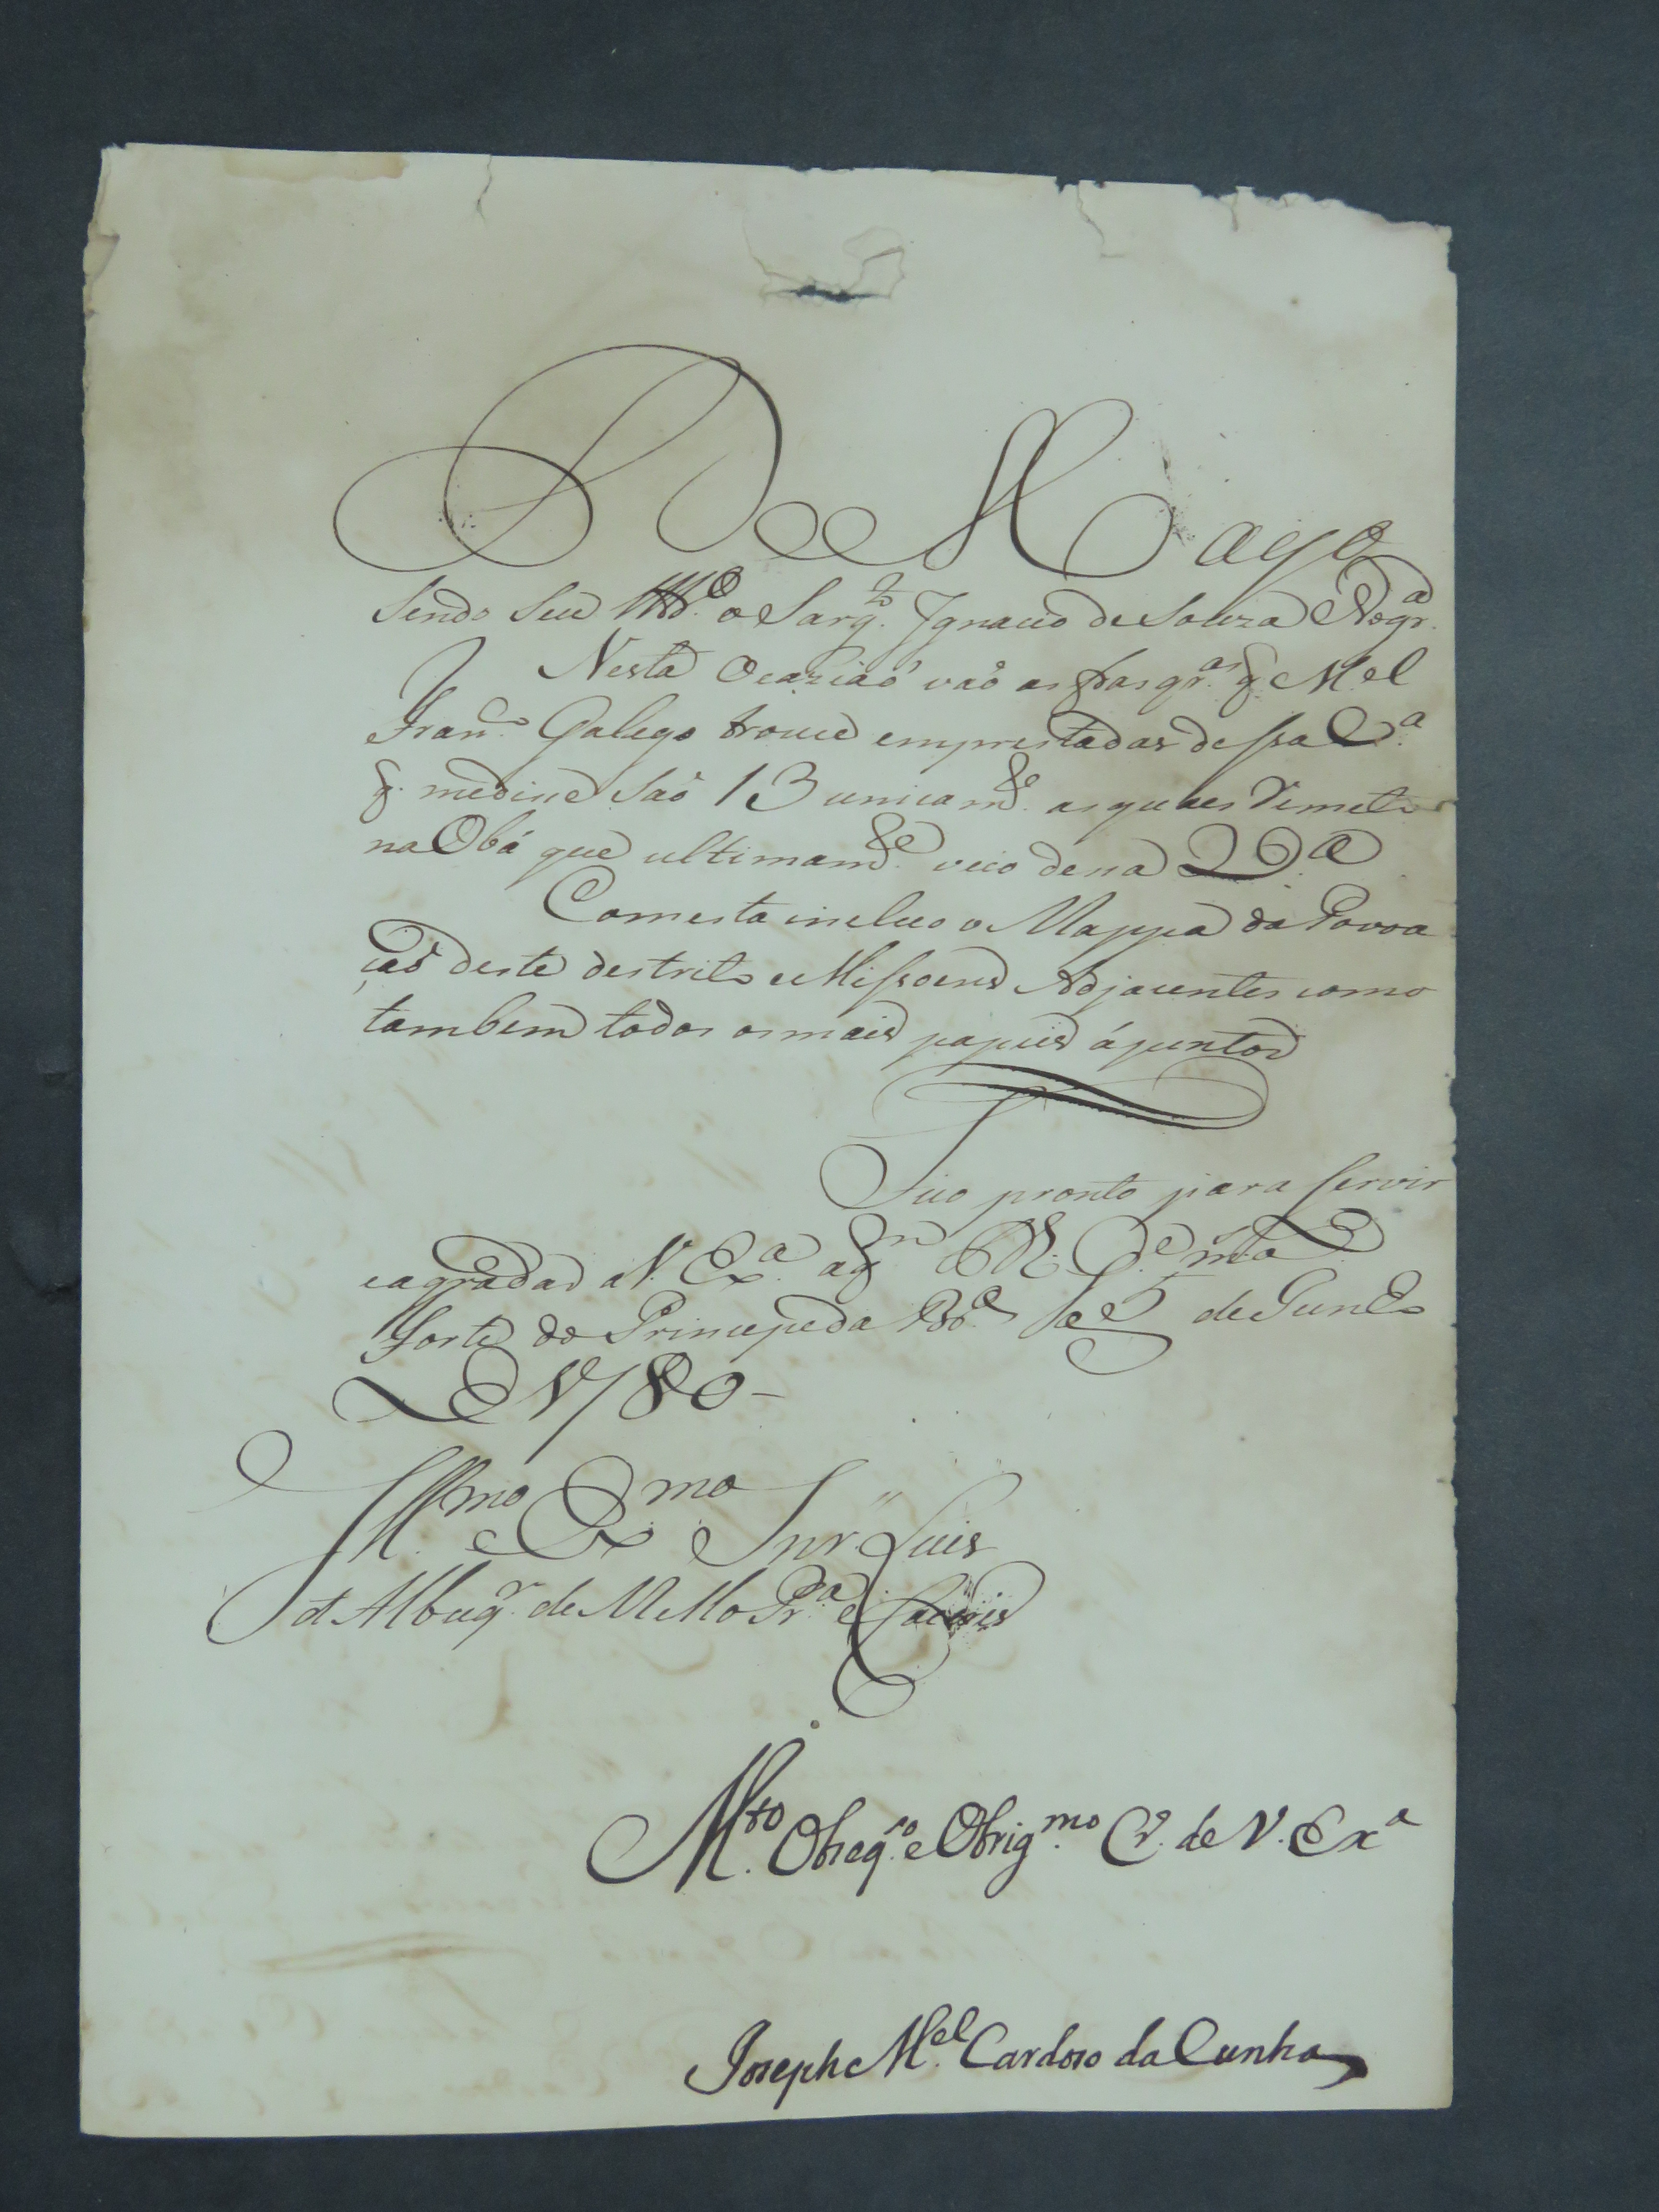 De Mayo
Sendo Seu M.e o Sarg.to Ignacio de Souza Nogr.a
Nesta Ocaziaó vaõ as fras gr.as q. M.el
Fran.co Galego trouce emprestadas dessa C.a
q. medise Saõ 13 unicam.te as quaes Remeto
na Obá que ultimam.te veio dessa
Comesta incluo o Mappa da Povoa
çaõ deste destrito e Missoens Adjacentes como
tambem todos os mais papeis ájuntos
Fico pronto para servir
eagradar a V. Ex.a aq.m D.s G.e m.s a.s
Forte do Principe da Br.a 5 de Junho
de 1780 -
Ill.mo e Ex.mo Snr. Luis
d Albuq.r de Mello Pr.a e Caceres
M.to Obzeq.zo e Obrig.mo Cr.o de V. Ex.a
Jozeph M.el Cardozo da Cunha